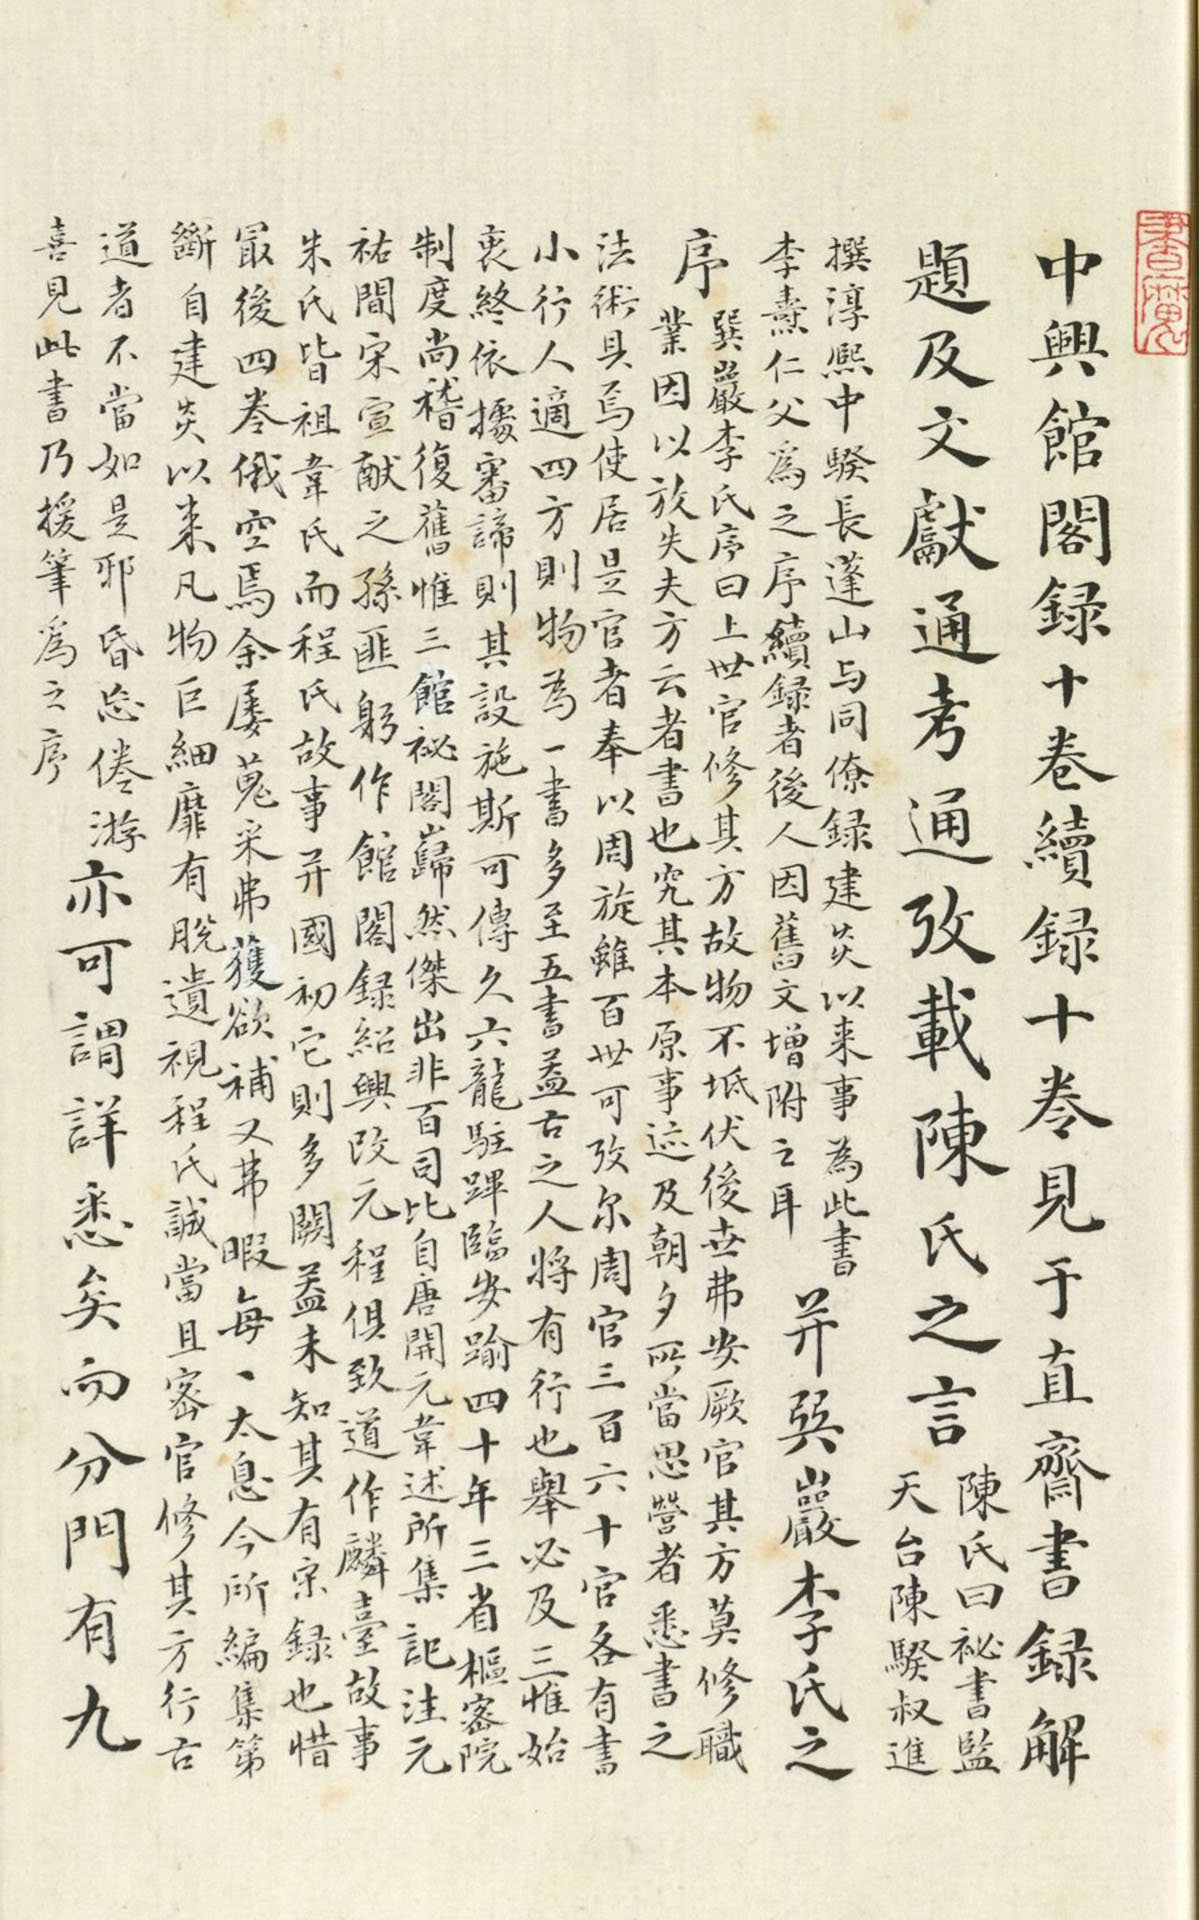 中興館閣録十卷續録十卷見于直齋書録解
題及文獻通考通攷載陳氏之言
陳氏曰祕書監
天台陳騤叔進
撰淳熙中騤長蓬山与同僚録建炎以来事為此書
李燾仁父爲之序續録者後人因舊文增附之耳
并巽巖李氏之
序
巽巖李氏序曰上世官修其方故物不坻伏後世弗安厥官其方莫修職
業因以放失夫方云者書也究其本原事迹及朝夕所當思營者悉書之
法術具焉使居是官者奉以周旋雖百世可攷尔周官三百六十官各有書
小行人適四方則物為一書多至五書葢古之人將有行也舉必及三惟始
衷終依據審諦則其設施斯可傳久六龍駐蹕臨安踰四十年三省樞密院
制度尚稽復舊惟三館祕閣巋然傑出非百司比自唐開元韋述所集記注元
祐間宋宣獻之孫匪躬作館閣録紹興改元程俱致道作麟臺故事
朱氏皆祖韋氏而程氏故事并國初它則多闕葢未知其有宋録也惜
最後四卷俄空焉余屢蒐采弗獲欲補又弗暇每一太息今所編集第
斷自建炎以来凡物巨細靡有脫遺視程氏誠當且密官修其方行古
道者不當如是邪昏忘倦游
喜見此書乃援筆爲之序
亦可謂詳悉矣而分門有九